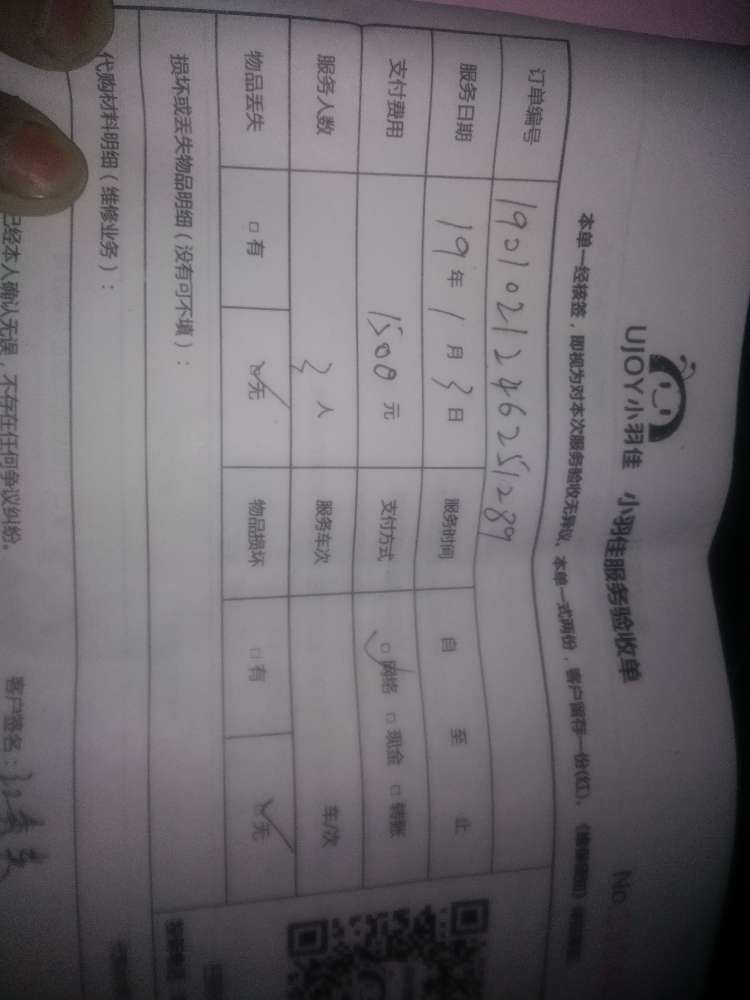 UJOY小羽佳 小羽佳服务验收单
No
本单一经核签，即视为对本次服务验收无异议，本单一式两份，客户留存一份(红)、
订单编号 1901021246251289
服务日期 19年1月3日 服务时间 自 至 止
支付费用 1500元 支付方式 □网络 □现金 □转账
服务人数 3人 服务车次 车/次
物品丢失 □有 □无 物品损坏 □有 □无
损坏或丢失物品明细（没有可不填）：
代购材料明细（维修业务）：
已经本人确认无误，不存在任何争议纠纷。 客户签名：